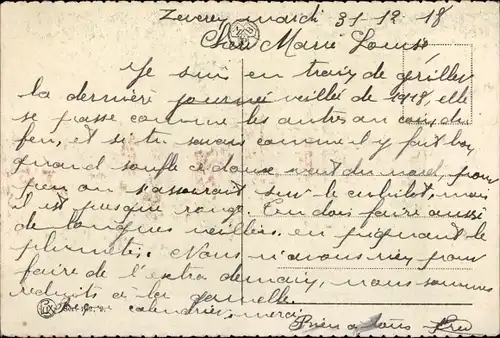 Zeveren mardi 31-12-18
Cher Marie Louise,
Je suis en train de griller
la dernière journée veillée de 1918, elle
se passe comme les autres au coin du
feu, et si tu savais comme il y fait bon
quand soufle ce doux vent du nord, pour
peu on s'assoierait sur le cubilot, mais
il est presque rouge. Tu dois faire aussi
de longues veillées, en peignant le
plumetis. Nous n'avons rien pour
faire de l'extra demain, nous sommes
réduits à la gamelle.
calendrier, merci
Bien à tous Fred